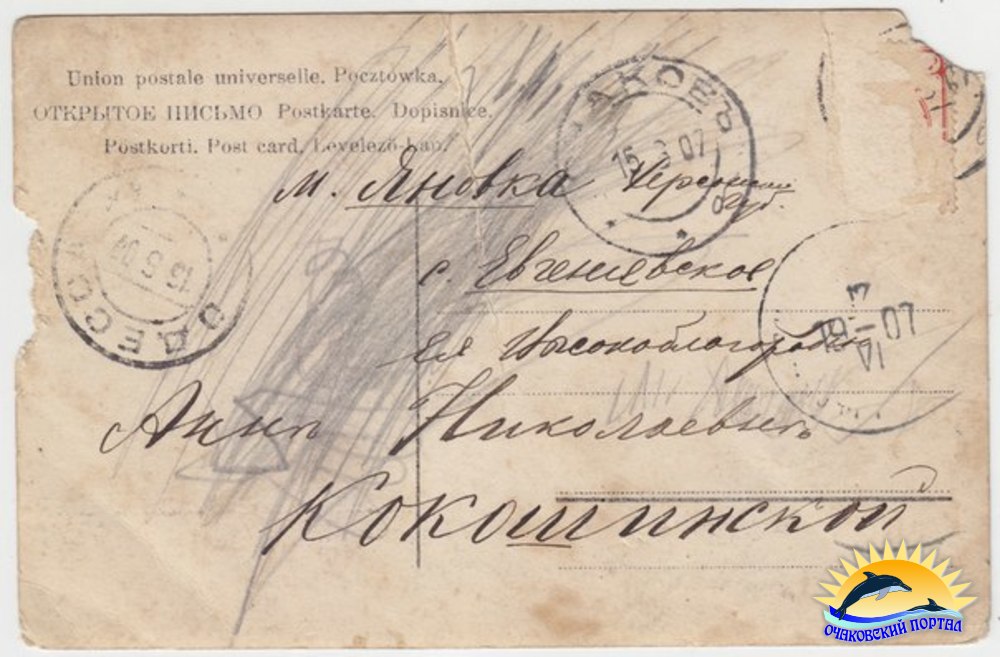 Union postale universelle. Pocztówka.
ОТКРЫТОЕ ПИСЬМО Postkarte. Dopisnice.
Postkorti. Post card. Levelező-Lap.
АКОВЪ
15 07
м. Яновка Херсонской
Губ.
с. Евгениевское
ОДЕССА
Ея Высокоблагородию
19 07
Аннѣ Николаевнѣ
Кокошинской
ОЧАКОВСКИЙ ПОРТАЛ